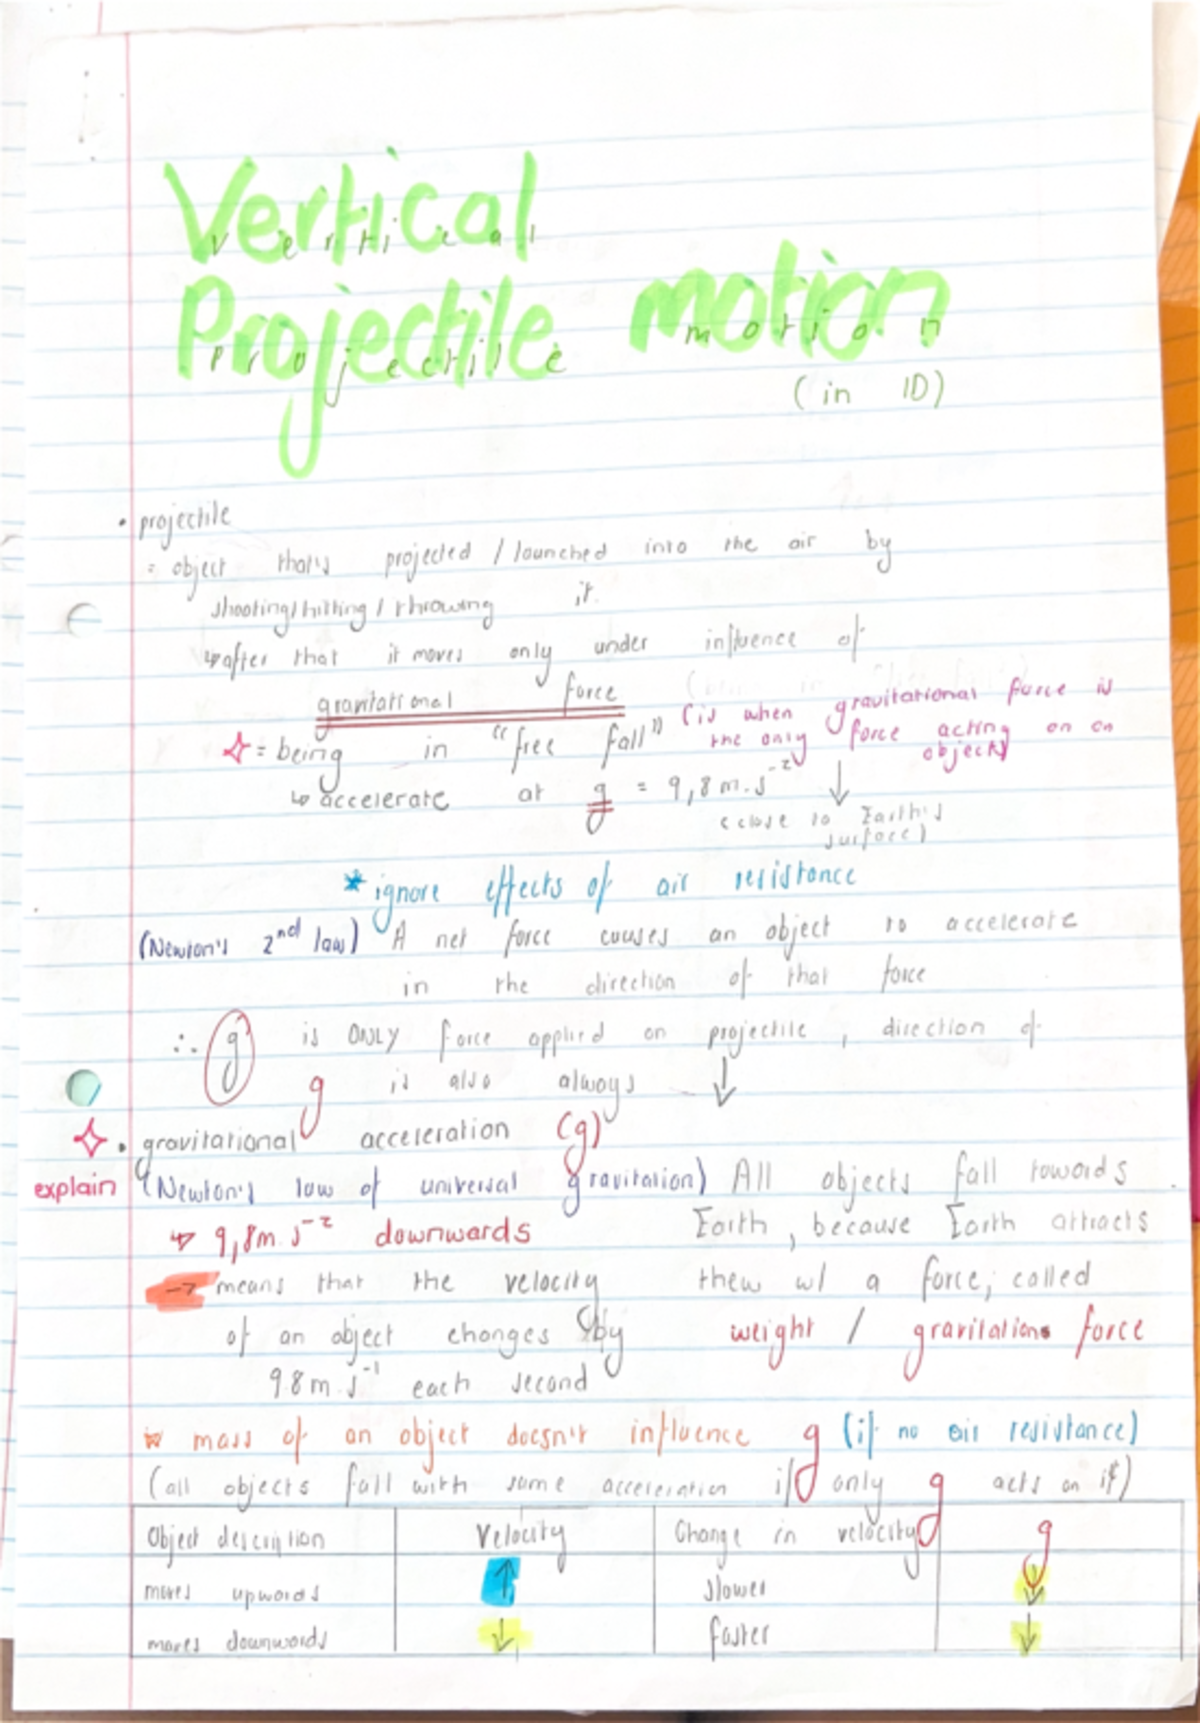 Vertical
Vertical
Projectile motion
Projectile motion
(in 1D)
• projectile
= object that's projected / launched into the air by
shooting/hitting / throwing it.
↳ after that it moves only under influence of
gravitational force
(is when gravitational force is
the only force acting on an
object)
✧ = being in "free fall"
↳ accelerate at g = 9,8 m.s⁻² ↓
(close to Earth's
surface)
* ignore effects of air resistance
(Newton's 2nd law) A net force causes an object to accelerate
in the direction of that force
∴ g is ONLY force applied on projectile, direction of
g is also always ↓
✧ • gravitational acceleration (g)
explain (Newton's law of universal gravitation) All objects fall towards
Earth, because Earth attracts
thew w/ a force, called
weight / gravitations force
↳ 9,8m.s⁻² downwards
→ means that the velocity
of an object changes by
9.8m.s⁻¹ each second
mass of an object doesn't influence g (if no air resistance)
(all objects fall with same acceleration if only g acts on it)
Object description Velocity Change in velocity g
moves upwards ↑ slower ↓
moves downwards ↓ faster ↓